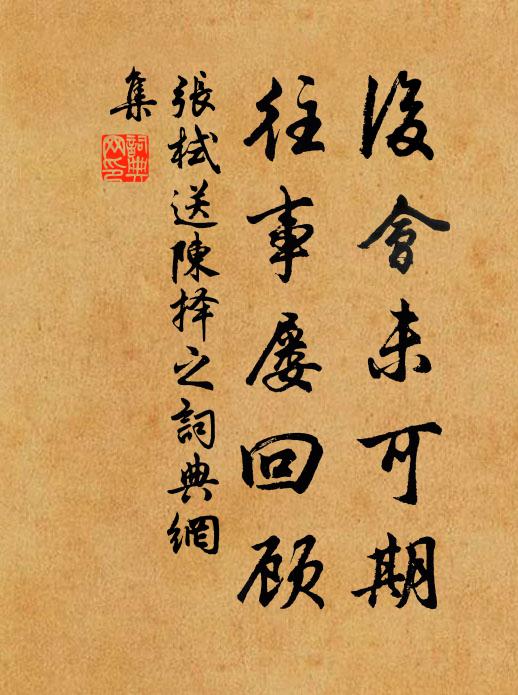 後會未可期
往事屢回顾
張栻送陳择之詞典網
集
詞典網印